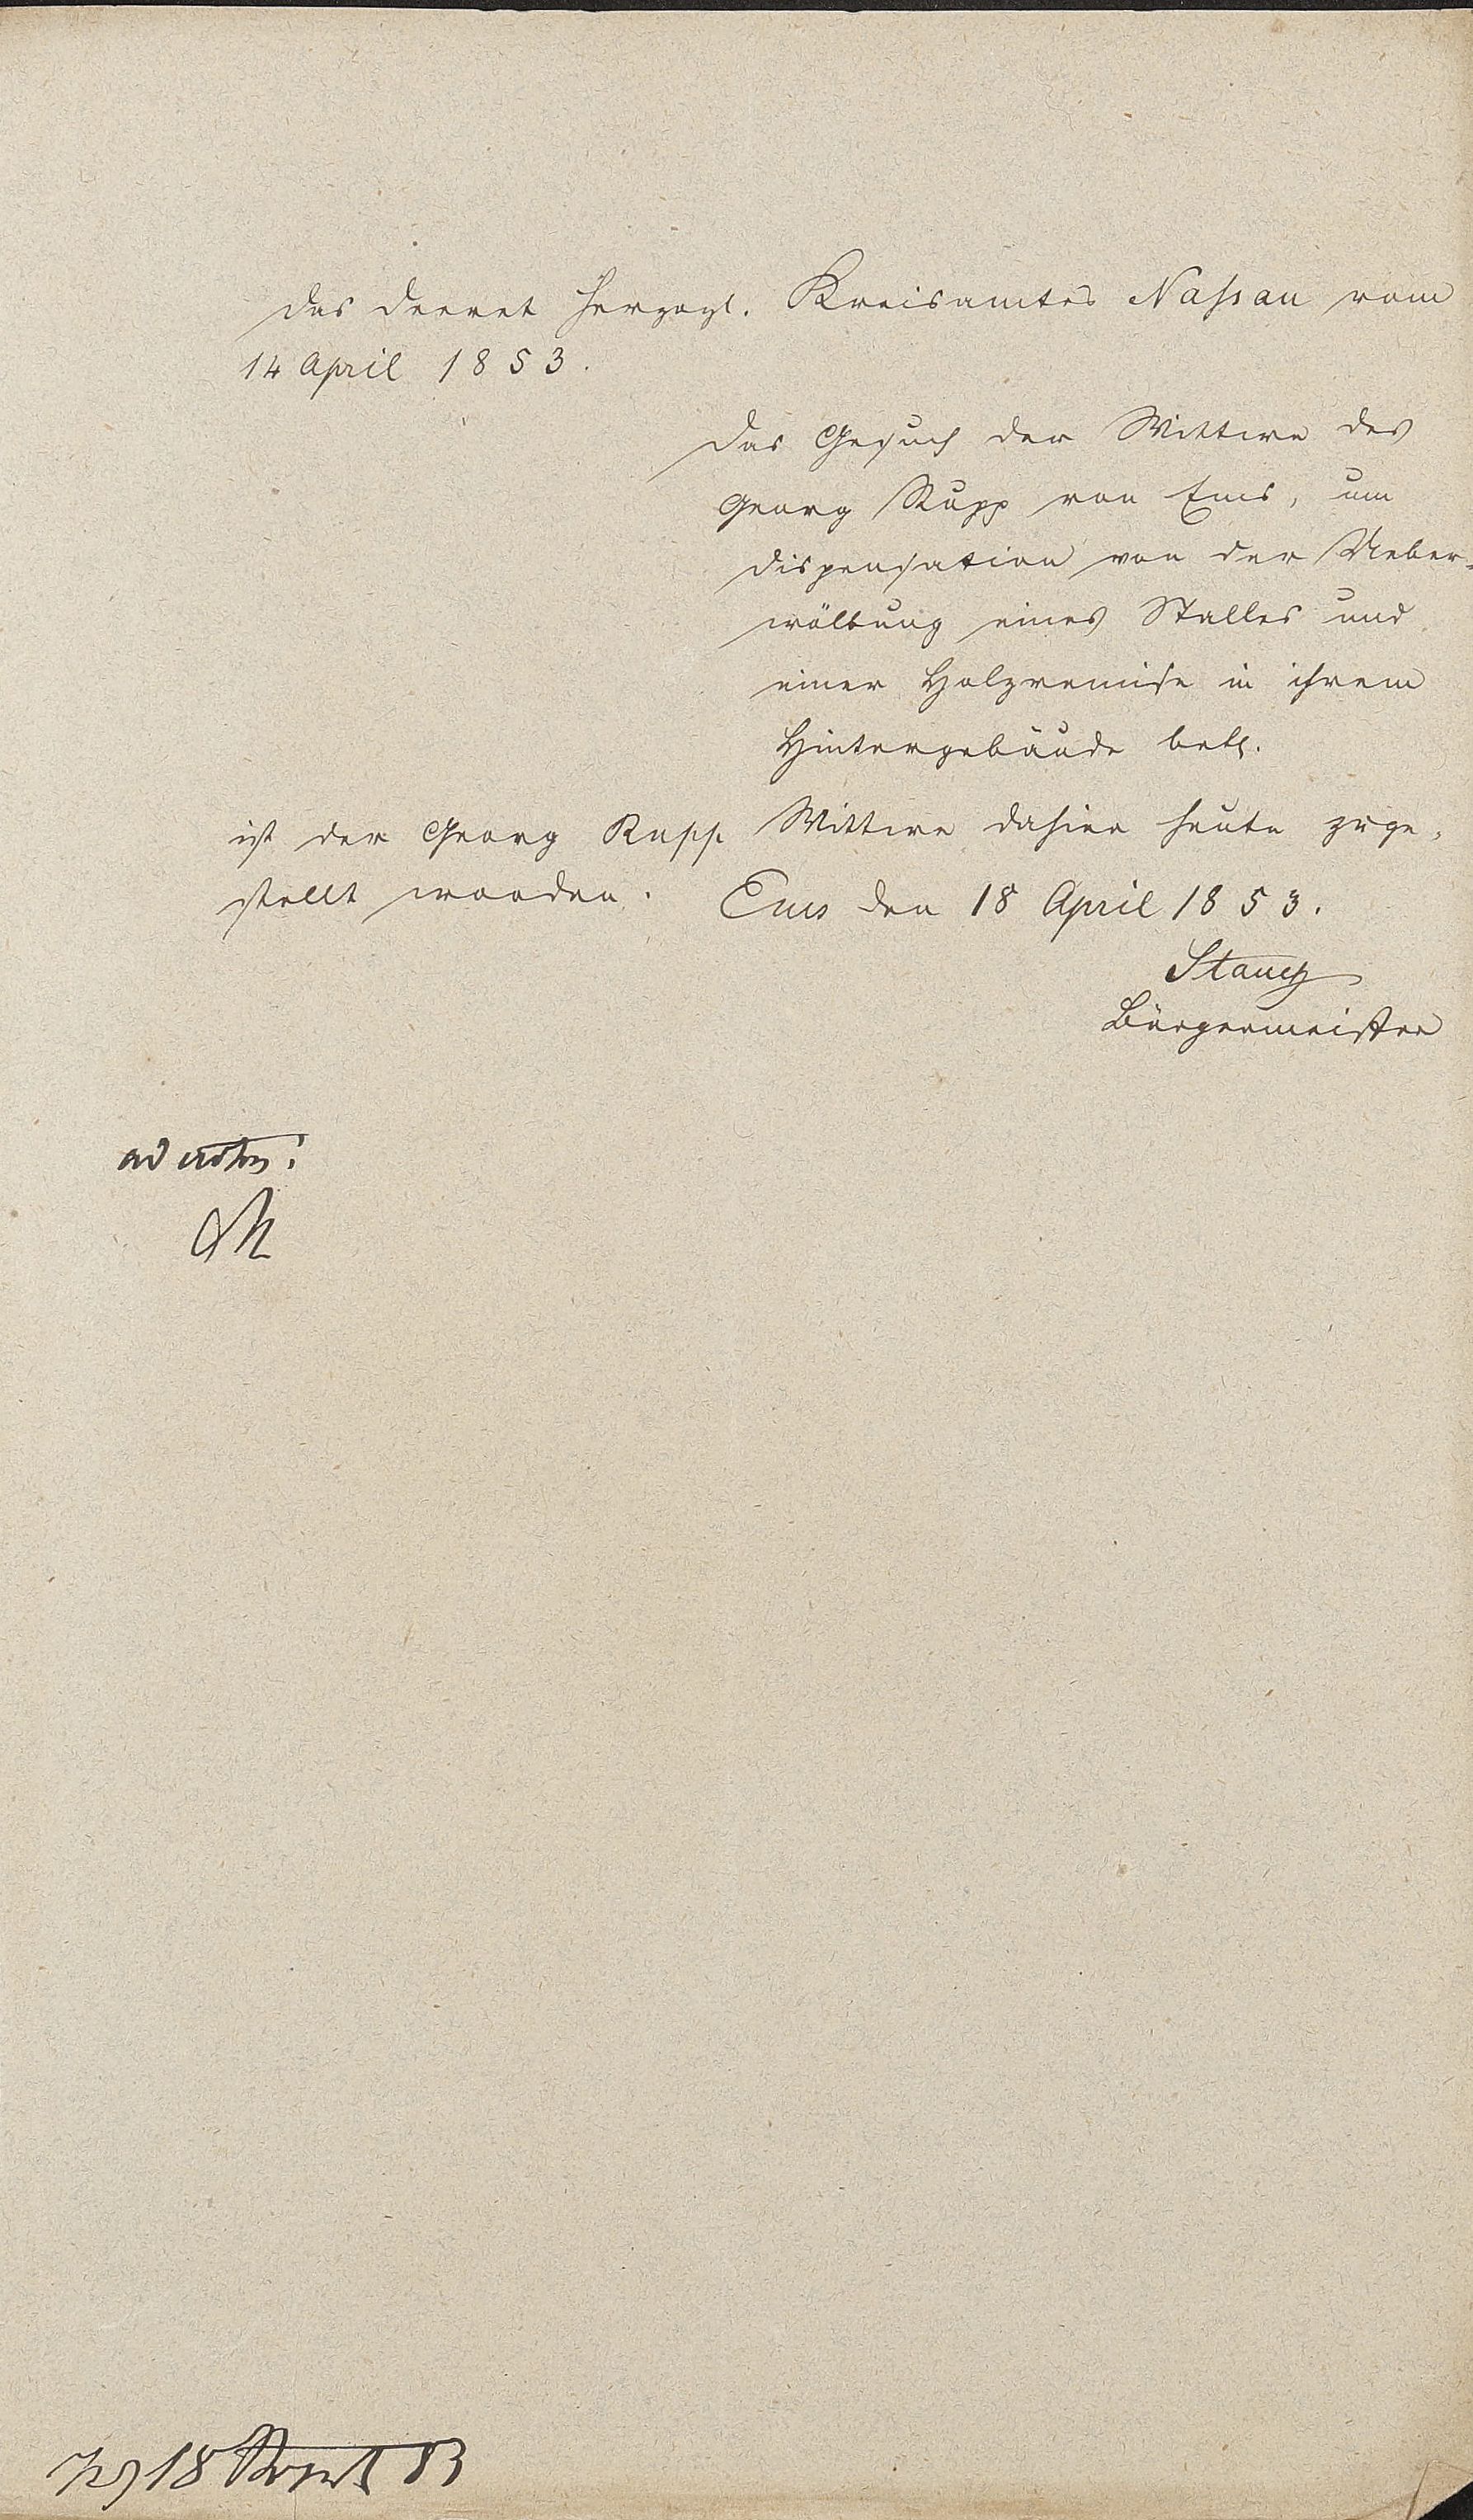 Das Decret Herzogl. Kreisamtes Nassau vom
14 April 1853.
Das Gesuch der Wittwe des
Georg Rupp von Ems, um
Dispensation von der Ueber-
wölbung eines Stalles und
einer Holzremise in ihrem
Hintergebäude betr.
ist der Georg Rupp Wittwe dahier heute zuge-
stellt worden. Ems den 18 April 1853.
Bürgermeister
ad acta.
18 April 53